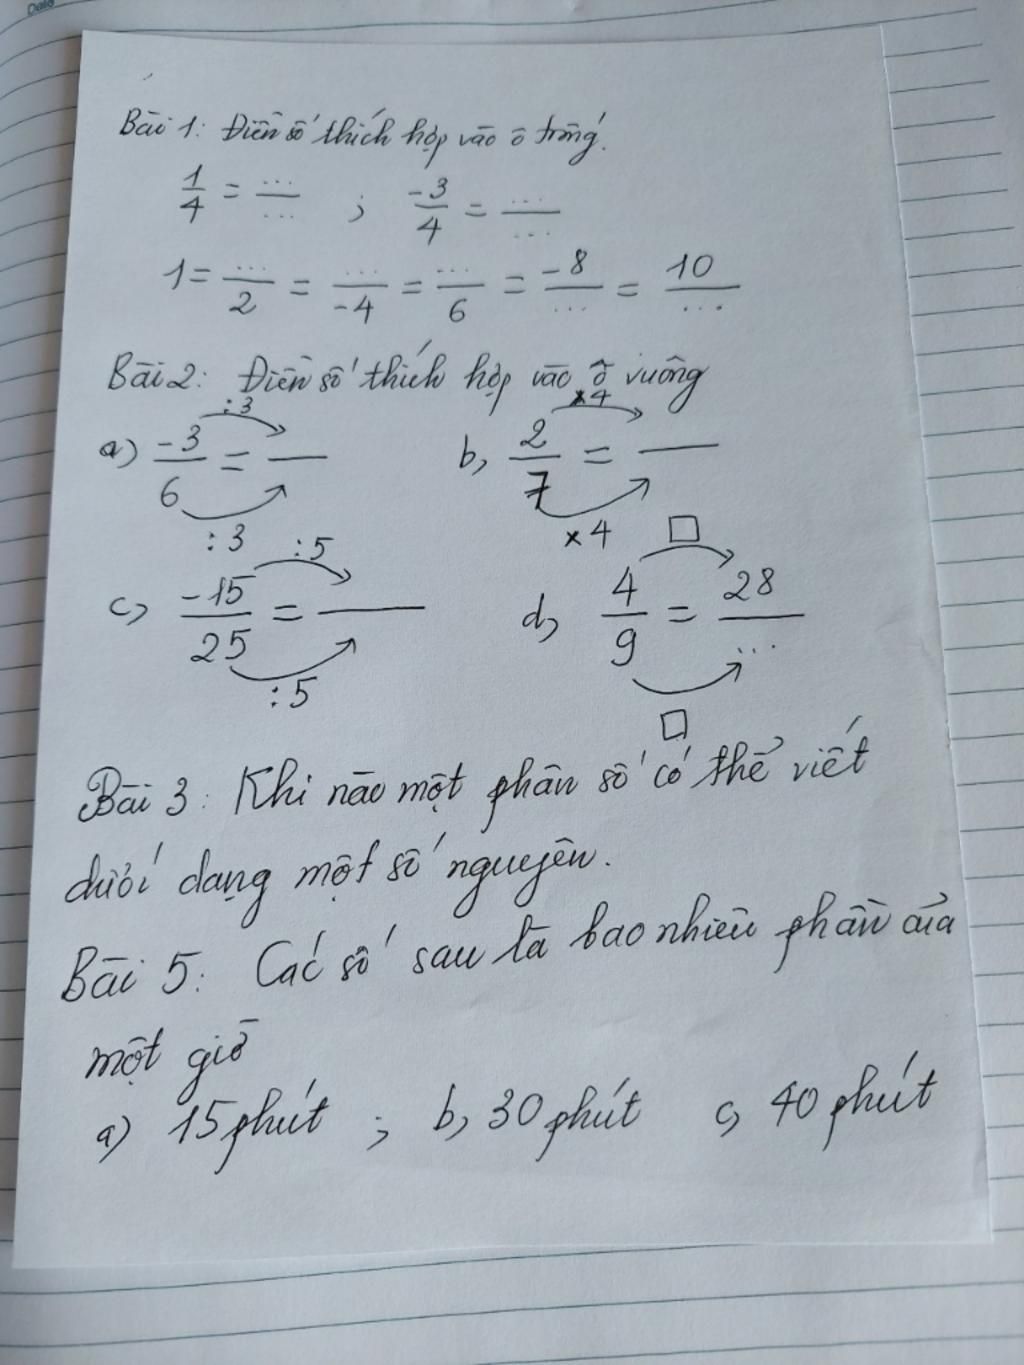 Date
Bài 1: Điền số thích hợp vào ô trống.
1/4 = .../... ; -3/4 = .../...
1 = .../2 = .../-4 = .../6 = -8/... = 10/...
Bài 2: Điền số thích hợp vào ô vuông
:3 ×4
a) -3/6 = — b, 2/7 = —
:3 ×4
:5 □
c, -15/25 = — d, 4/9 = 28/...
:5 □
Bài 3: Khi nào một phân số có thể viết
dưới dạng một số nguyên.
Bài 5: Các số sau là bao nhiêu phần của
một giờ
a) 15 phút ; b, 30 phút c, 40 phút